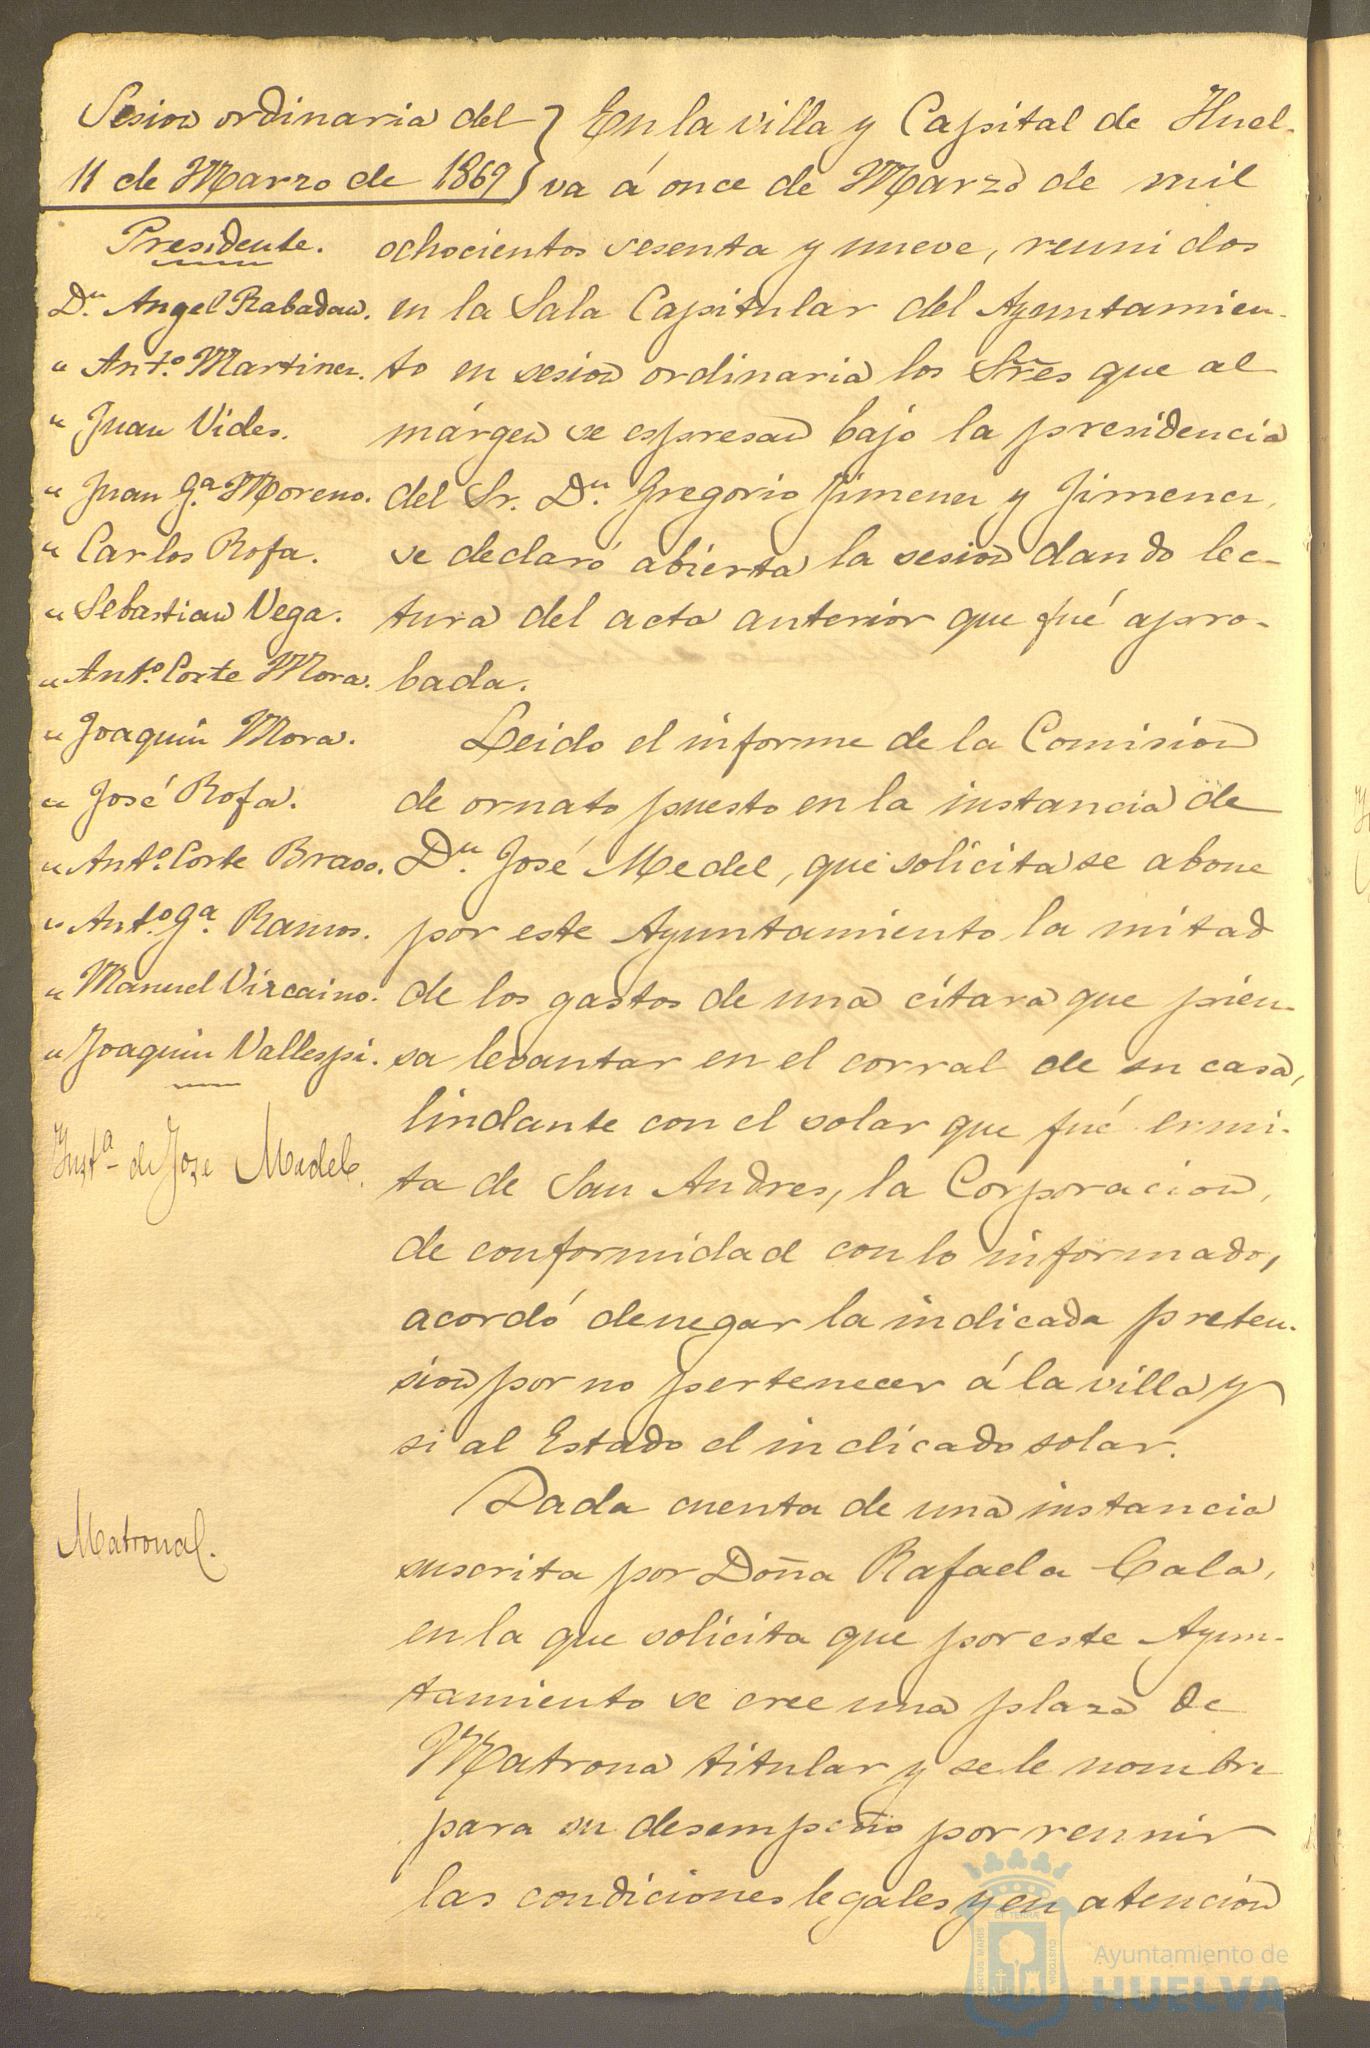 Sesion ordinaria del
11 de Marzo de 1869
Presidente.
Dn. Angel Rabadan.
" Anto. Martinez.
" Juan Vides.
" Juan Ga. Moreno.
" Carlos Rofa.
" Sebastian Vega.
" Anto. Corte Mora.
" Joaquin Mora.
" José Rofa.
" Anto. Corte Bravo.
" Anto. Ga. Ramos.
" Manuel Vizcaino.
" Joaquin Vallespi.
Insta. de Jose Medel.
Matrona.
En la villa y Capital de Huel-
va á once de Marzo de mil
ochocientos sesenta y nueve, reunidos
en la Sala Capitular del Ayuntamien-
to en sesion ordinaria los Sres que al
márgen se espresan bajo la presidencia
del Sr. Dn. Gregorio Jimenez y Jimenez,
se declaró abierta la sesion dando lec-
tura del acta anterior que fué apro-
bada.
Leido el informe de la Comision
de ornato puesto en la instancia de
Dn. José Medel, que solicita se abone
por este Ayuntamiento la mitad
de los gastos de una cítara que pien-
sa levantar en el corral de su casa,
lindante con el solar que fué ermi-
ta de San Andres, la Corporacion,
de conformidad con lo informado,
acordó denegar la indicada preten-
sion por no pertenecer á la villa y
si al Estado el indicado solar.
Dada cuenta de una instancia
suscrita por Doña Rafaela Cala,
en la que solicita que por este Ayun-
tamiento se cree una plaza de
Matrona titular y se le nombre
para su desempeño por reunir
las condiciones legales y en atencion
Ayuntamiento de
HUELVA